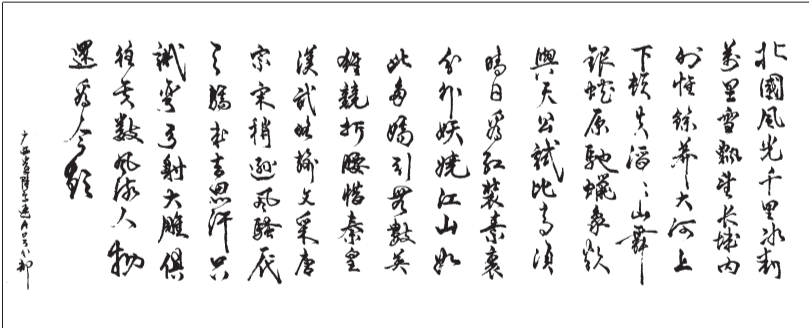 北國風光千里冰封
萬里雪飄望長城內
外惟餘莽大河上
下頓失滔〻山舞
銀蛇原馳蠟象欲
與天公試比高須
晴日看紅裝素裹
分外妖嬈江山如
此多嬌引無數英
雄競折腰惜秦皇
漢武略輸文采唐
宗宋稍遜風騷
驕成吉思汗只
識彎弓射大雕俱
往矣數風流人物
還看今朝